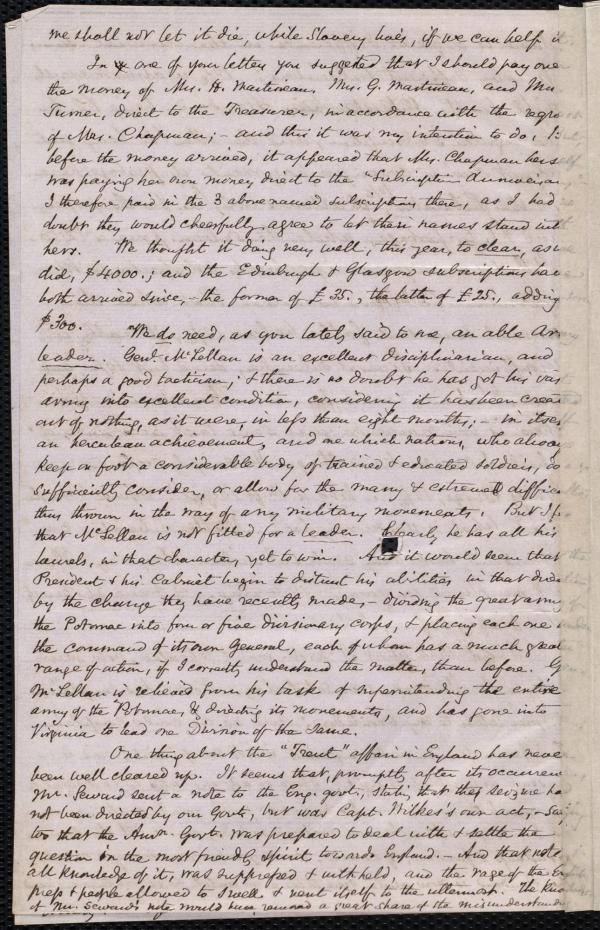 we shall not let it die, while Slavery lives, if we can help it
In one of your letters you suggested that I should pay over
the money of Mrs. H. Martineau, Mrs. G. Martineau, and Mrs
Turner, direct to the Treasurer, in accordance with the
of Mrs. Chapman; – and this it was my intention to do,
before the money arrived, it appeared that Mrs. Chapman hers
was paying her own money direct to the "Subscription Anniversary
I therefore paid in the 3 above named subscriptions there, as I had
doubt they would cheerfully agree to let their names stand with
hers. We thought it doing very well, this year, to clear, as
did, $4000.; and the Edinburgh & Glasgow subscriptions have
both arrived since, – the former of £35., the latter of £25., adding
$300. We do need, as you lately said to me, an able
leader. Genl. McLellan is an excellent disciplinarian, and
perhaps a good tactician; & there is no doubt he has got his vast
army into excellent condition, considering it has been crea
out of nothing, as it were, in less than eight months; – in itse
an herculean achievement, and one which nations, who always
keep on foot a considerable body of trained & educated soldiers, do
sufficiently consider, or allow for the many & extreme difficu
thus thrown in the way of any military movements. But I
that McLellan is not fitted for a leader. Clearly he has all his
laurels, in that character, yet to win. And it would seem that
President & his Cabinet begin to distrust his abilities in that
by the change they have recently made, – dividing the great army
the Potomac into four or five divisionary corps, & placing each one
the command of its own General, each of whom has a much great
range of action, if I correctly understand the matter, than before. G
McLellan is relieved from his task of superintending the entire
army of the Potomac, & directing its movements, and has gone into
Virginia to lead one Division of the same.
One thing about the "Trent" affair in England has never
been well cleared up. It seems that, promptly after its occurren
Mr. Seward sent a note to the Eng. govt., stating that the seizure ha
not been directed by our Govt, but was Capt. Wilkes's own act, –
too that the Amn. Govt. was prepared to deal with & settle the
question in the most friendly spirit towards England. – And that note
all knowledge of it, was suppressed & withheld, and the rage of the En
press & people allowed to swell & vent itself to the uttermost. The kno
of Mr. Seward's note would have removed a great share of the misunderstandin